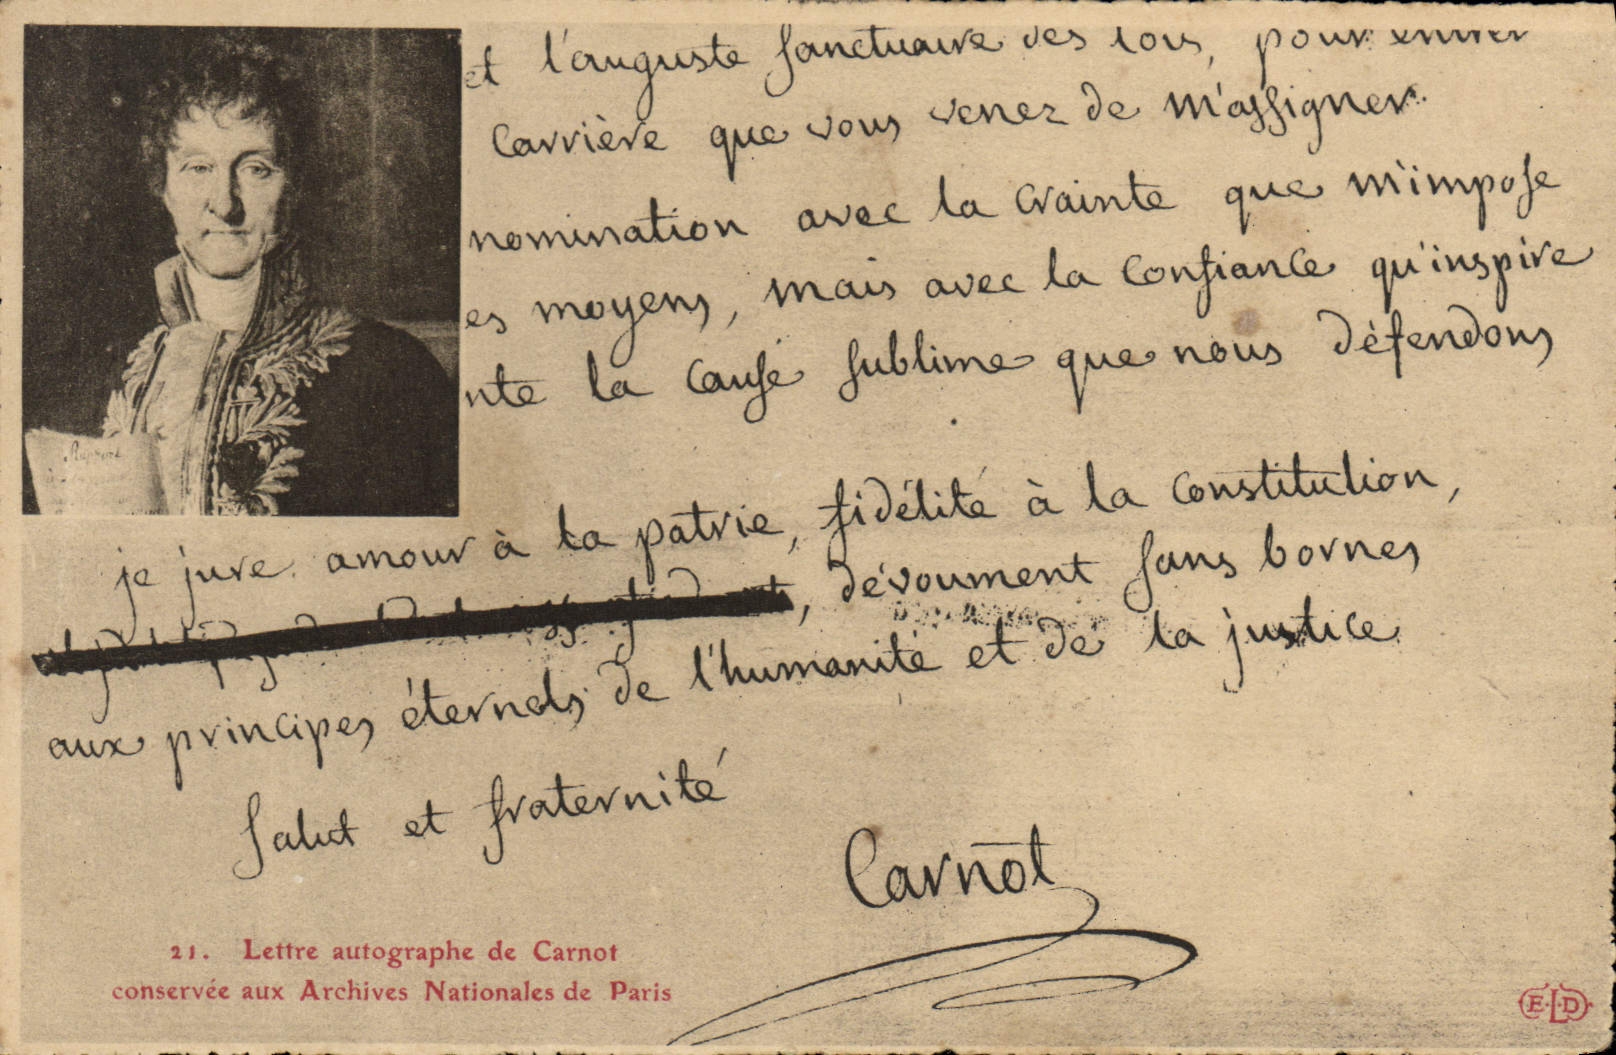 et l'auguste sanctuaire des lois, pour entrer
carrière que vous venez de m'assigner.
nomination avec la crainte que m'impose
es moyens, mais avec la confiance qu'inspire
nte la cause sublime que nous défendons
je jure amour à la patrie, fidélité à la constitution,
, dévoument sans bornes
aux principes éternels de l'humanité et de la justice
Salut et fraternité
Carnot
21. Lettre autographe de Carnot
conservée aux Archives Nationales de Paris
E.L.D